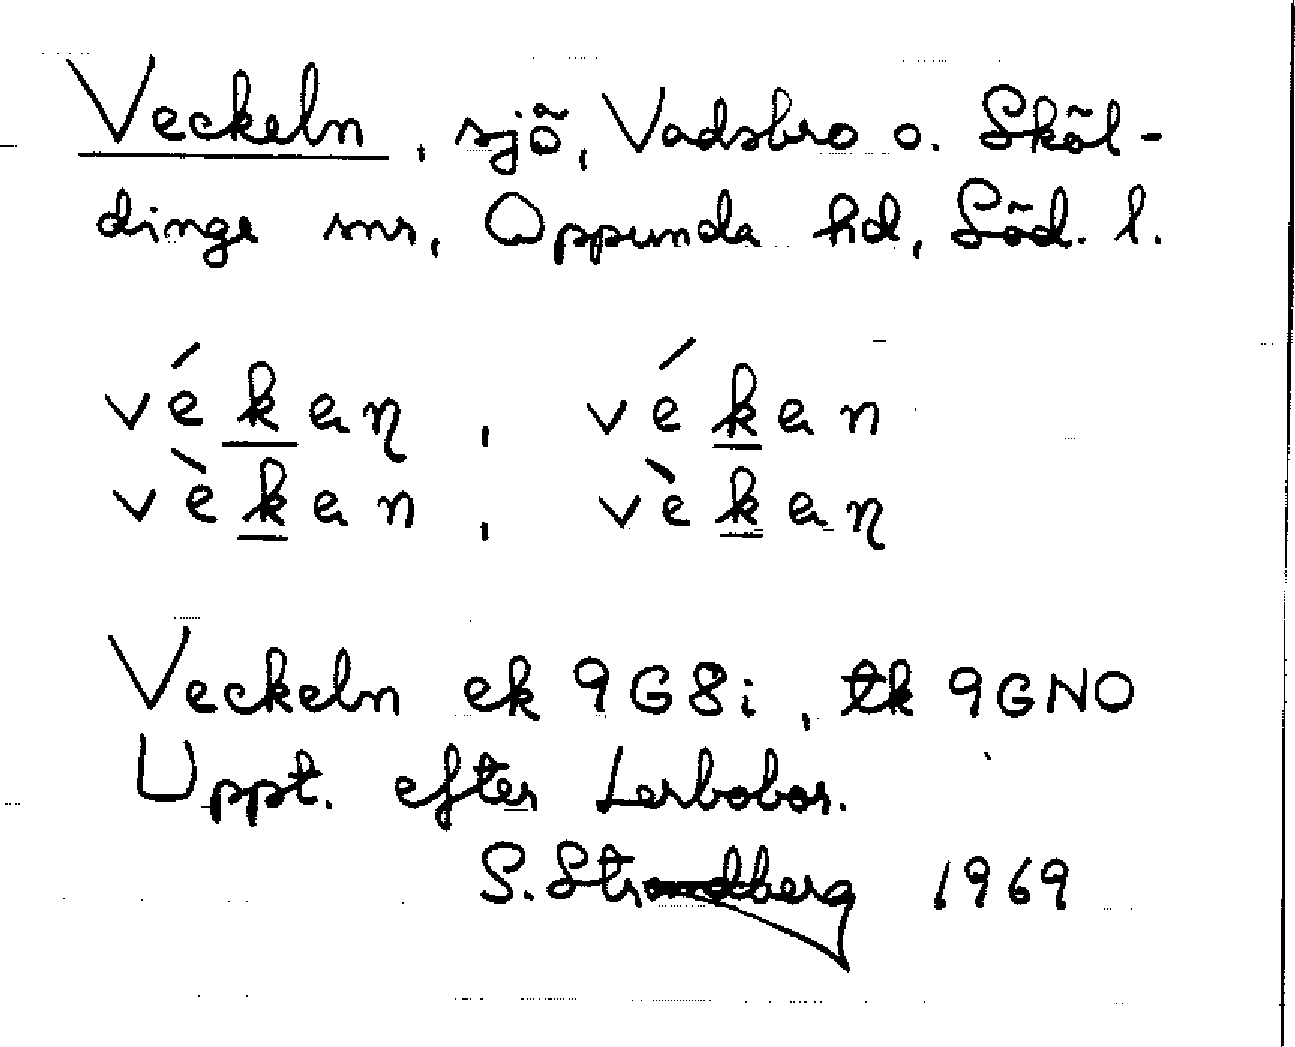 Veckeln, sjö, Vadsbro o. Sköl-
dinge snr, Oppunda hd, Söd. l.
vékaɳ, vékan
vèkan, vèkaɳ
Veckeln ek 9G8i, tk 9GNO
Uppt. efter Lerbobor.
S. Strandberg 1969